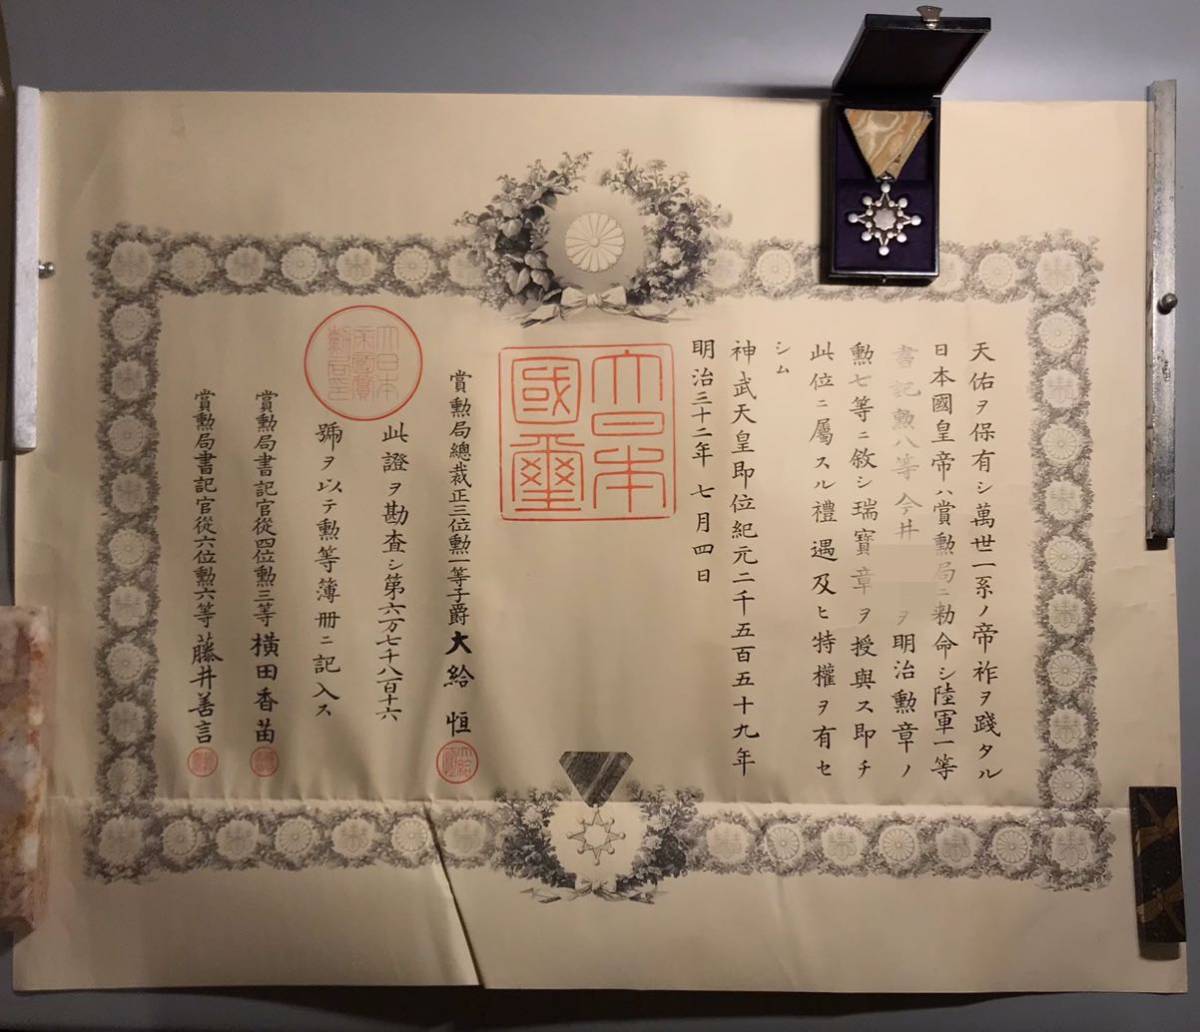 天佑ヲ保有シ萬世一系ノ帝祚ヲ踐タル
日本國皇帝ハ賞勲局ニ勅命シ陸軍一等
書記勲八等今井 ヲ明治勲章ノ
勲七等ニ敘シ瑞寶章ヲ授與ス即チ
此位ニ屬スル禮遇及ヒ特權ヲ有セ
シム
神武天皇即位紀元二千五百五十九年
明治三十二年七月四日
大日本國璽
賞勲局總裁正三位勲一等子爵大給恒
此證ヲ勘査シ第六万七千八百十六
號ヲ以テ勲等簿冊ニ記入ス
賞勲局書記官從四位勲三等橫田香苗
賞勲局書記官從六位勲六等藤井善言